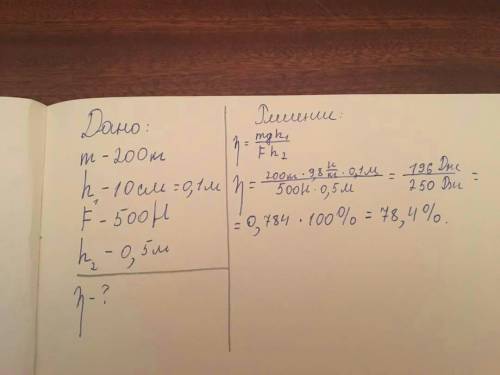 Дано:
m - 200 кг
h₁ - 10 см = 0,1 м
F - 500 Н
h₂ - 0,5 м
η - ?
Решение:
η = mgh₁ / Fh₂
η = 200 кг · 9,8 Н/кг · 0,1 м / 500 Н · 0,5 м = 196 Дж / 250 Дж =
= 0,784 · 100% = 78,4%.